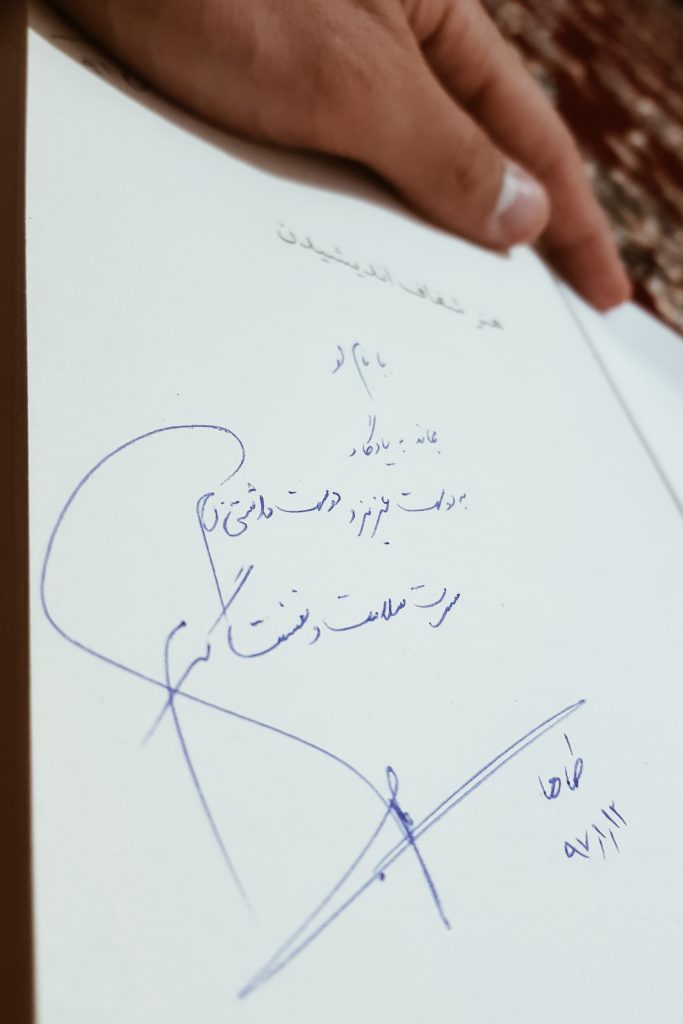 هنر شفاف اندیشیدن
با نام او
بماند به یادگار
به دوست عزیز و دوست داشتنی‌ام
سرت سلامت و نفست گرم
طاها
۹۷/۱/۱۲